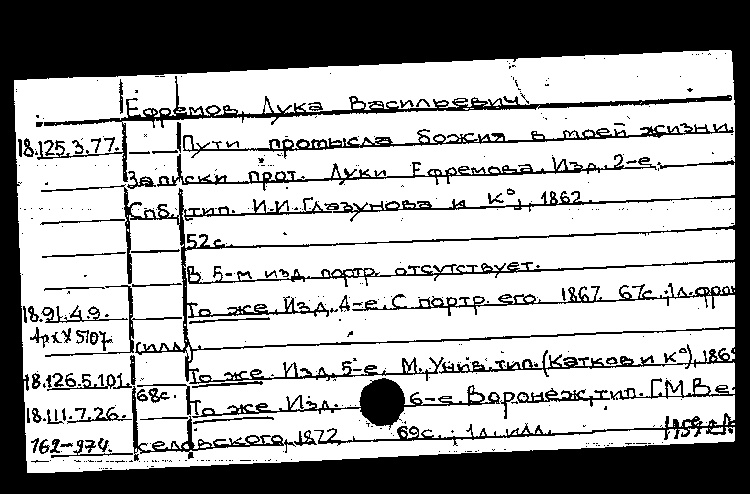 Ефремов, Лука Васильевич
18.125.3.77. Пути промысла божия в моей жизни.
Записки прот. Луки Ефремова. Изд. 2-е.
Спб., тип. И.И.Глазунова и К°, 1862.
52с.
В 5-м изд. портр. отсутствует.
18.91.4.9. То же. Изд. 4-е. С портр. его. 1867. 67с.; 1л. фрон
(илл).
18.126.5.101. То же. Изд. 5-е. М., Унив. тип. (Катков и К°), 1869
68с.
18.111.7.26. То же. Изд. 6-е. Воронеж, тип. Г.М.Ве-
162-974. селовского, 1872. 69с.; 1л. илл.